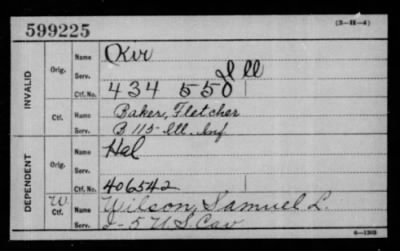 599225
(3-H-4)
INVALID
Orig.
Name
Serv.
Ill
Ctf. No.
434 550
Ctf.
Name
Baker, Fletcher
Serv.
B 115 Ill. Inf
DEPENDENT
Orig.
Name
Hal
Serv.
Ctf. No.
406542
W.
Ctf.
Name
Wilson, Samuel L.
Serv.
U S Cav
6-1303